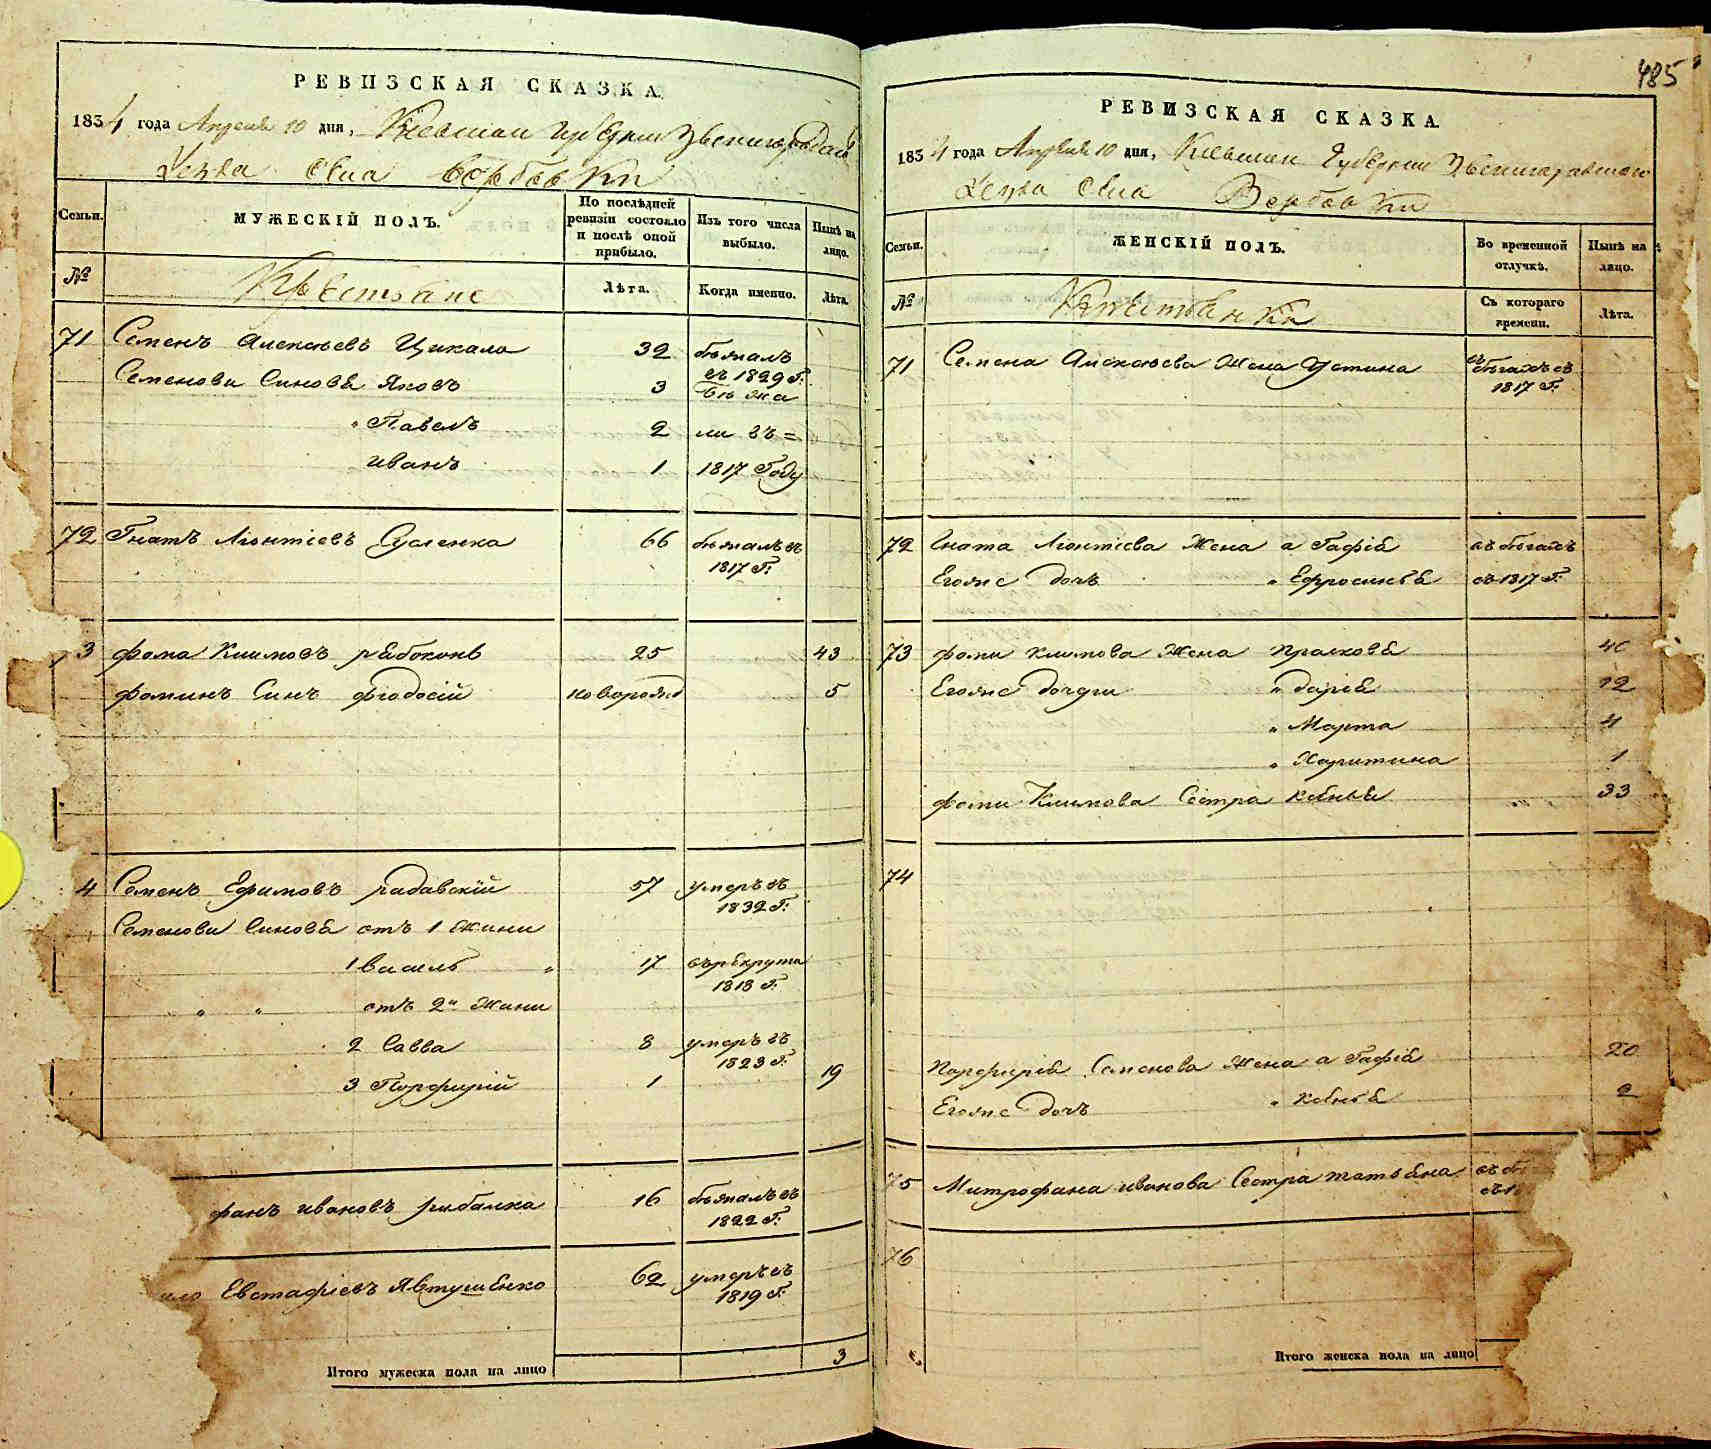 РЕВИЗСКАЯ СКАЗКА
1834 года Апреля 10 дня, Киевской Губернии Звенигородской
Уезда Села Вербовки
Семьи. МУЖЕСКІЙ ПОЛЪ. По послѣдней ревизіи состояло и послѣ оной прибыло. Изъ того числа выбыло. Нынѣ на лицо.
№ Крестьяне Лѣта. Когда именно. Лѣта.
71 Семенъ Алексѣевъ Цикало 32 бѣжалъ въ 1829 Г:
Семенови Синовя Яковъ 3 Бѣжа
" Павелъ 2 ли въ =
иванъ 1 1817 Году
72 Гнатъ Ліонтіевъ 66 бѣжалъ въ 1817 Г:
3 фома Климовъ рябоконь 25 43
фоминъ Синъ феодосій новорожд 5
4 Семенъ Ефимовъ радавскій 57 умеръ въ 1832 Г:
Семенови Синовя отъ 1 жини
1 василь " 17 въ рекрута 1818 Г:
" " отъ 2й жини
2 Савва 8 умеръ въ 1823 Г:
3 Порфирій 1 19
фанъ ивановъ рибалка 16 бѣжалъ въ 1822 Г:
ило Евстафіевъ Явтушенко 62 умеръ въ 1819 Г:
Итого мужеска пола на лицо 3
485
РЕВИЗСКАЯ СКАЗКА
1834 года Апреля 10 дня, Киевской Губернии Звенигородского
Уезда Села Вербовки
Семьи. ЖЕНСКІЙ ПОЛЪ. Во временной отлучкѣ. Нынѣ на лицо.
№ Крестьянки Съ котораго времени. Лѣта.
71 Семена Алексѣева Жена Устина въ бѣгахъ съ 1817 Г:
72 Гната Ліонтіева Жена агафія въ бѣгахъ
Егоже дочь " Ефросинья съ 1817 Г:
73 фоми климова Жена прасковя 40
Егоже дочери " дарія 12
" Марта 4
" Харитина 1
фоми Климова Сестра 33
74
Порфирія Семенова Жена агафія 20
Егоже дочь 2
75 Митрофана иванова Сестра татьяна въ бѣ
76
Итого женска пола на лицо